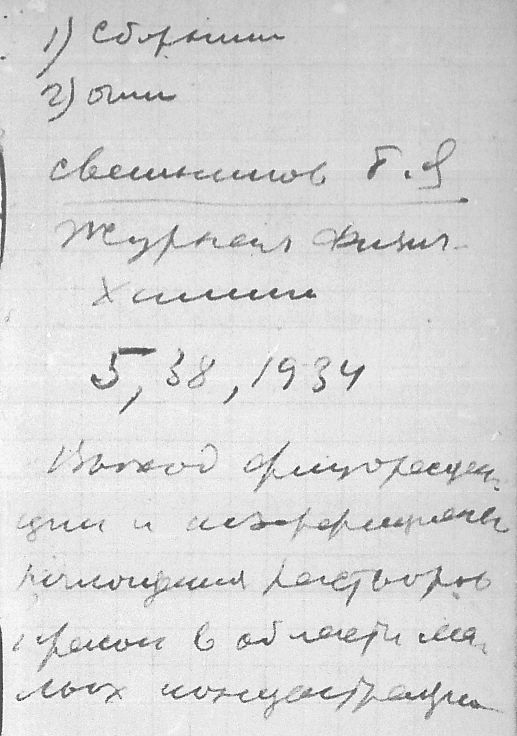 1) Сборники
2) оттиски
Свешников Б. Я
Журнал Физич.
Химии
5, 38, 1934
Выход флуоресцен-
ции и коэффициенты
поглощения растворов
красок в области ма-
лых концентраций